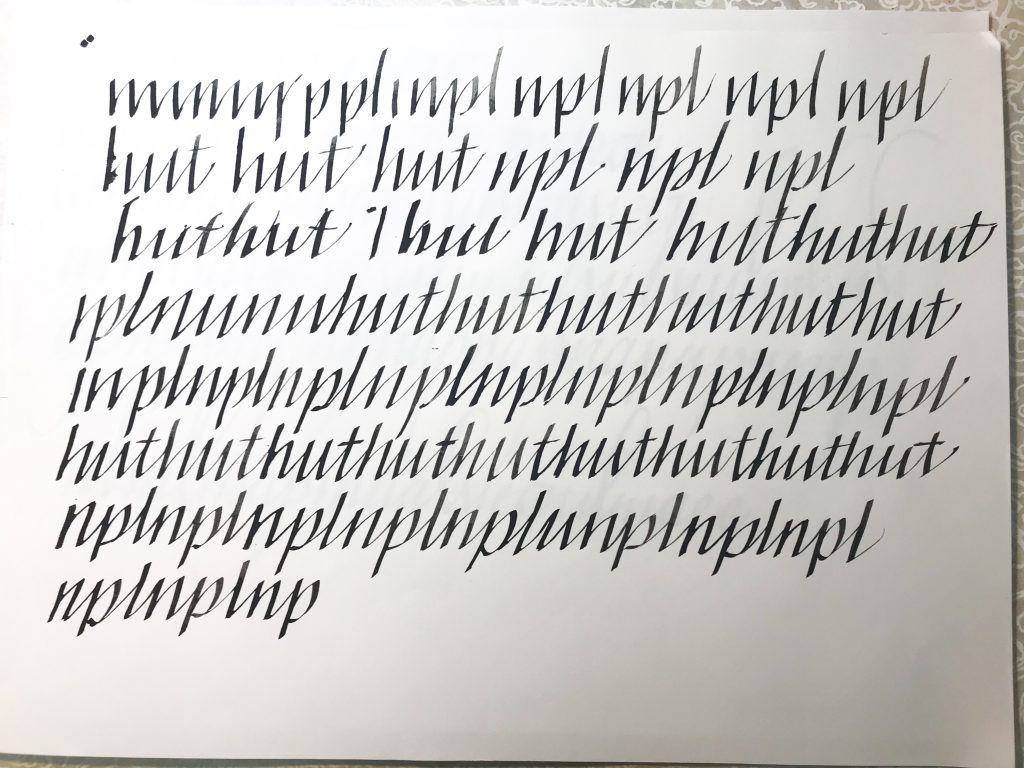 p pl npl npl npl npl npl
hut hut hut npl npl npl
huthut huu hut huthuthut
nplnununuhuthuthuthuthuthut
inplnplnplnplnplnplnplnplnpl
huthuthuthuthuthuthuthuthut
nplnplnplnplnplunplnplnpl
nplnplnp